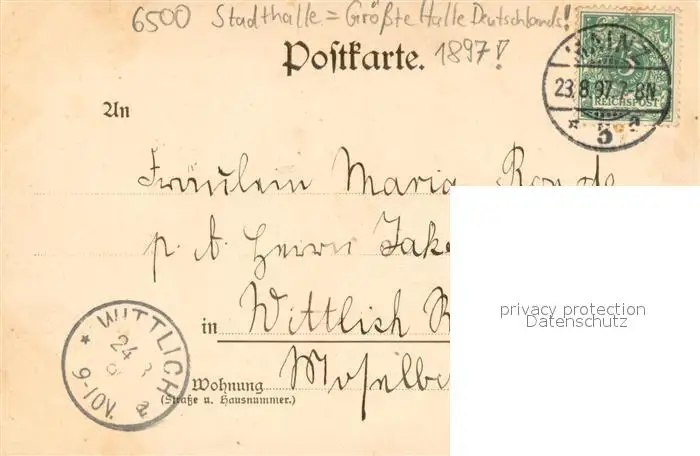 6500 Stadthalle = Größte Halle Deutschlands!
1897!
Postkarte.
MAINZ
23.8.97.7-8N
* 5 a
5
REICHSPOST
An
Fräulein Maria
p. A. Herrn Jak
in Wittlich
Moselbe
WITTLICH
24 8
9-10V.
Wohnung
(Straße u. Hausnummer.)
privacy protection
Datenschutz